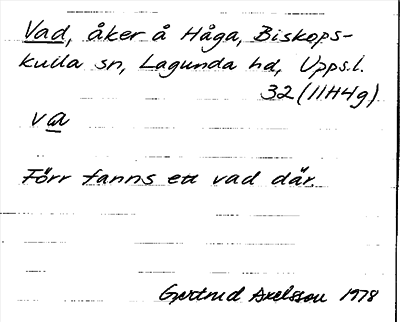 Vad, åker å Håga, Biskops-
kulla sn, Lagunda hd, Upps.l.
32 (11H4g)
va
Förr fanns ett vad där.
Gertrud Axelsson 1978